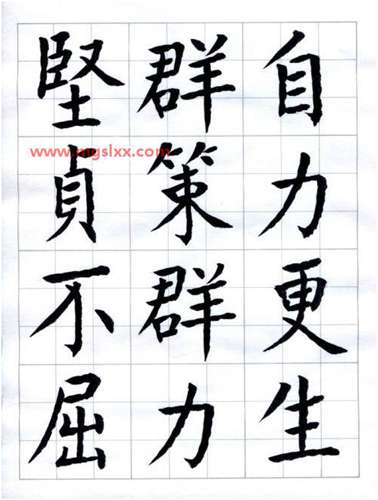 自力更生
群策群力
堅貞不屈
www.mgslxx.com